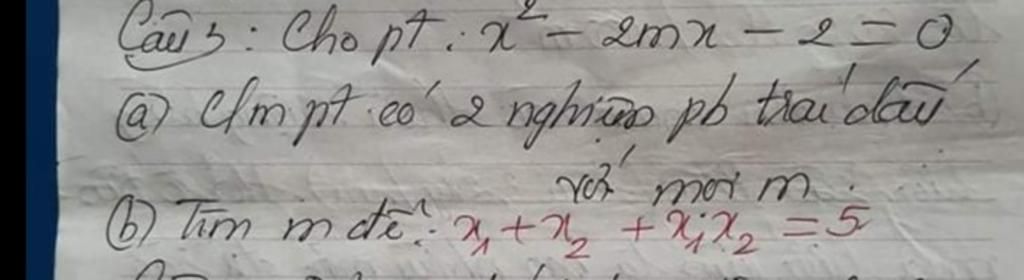 Câu 3: Cho pt: x² - 2mx - 2 = 0
a) C/m pt có 2 nghiệm pb trái dấu
với mọi m.
b) Tìm m để: x₁ + x₂ + x₁.x₂ = 5